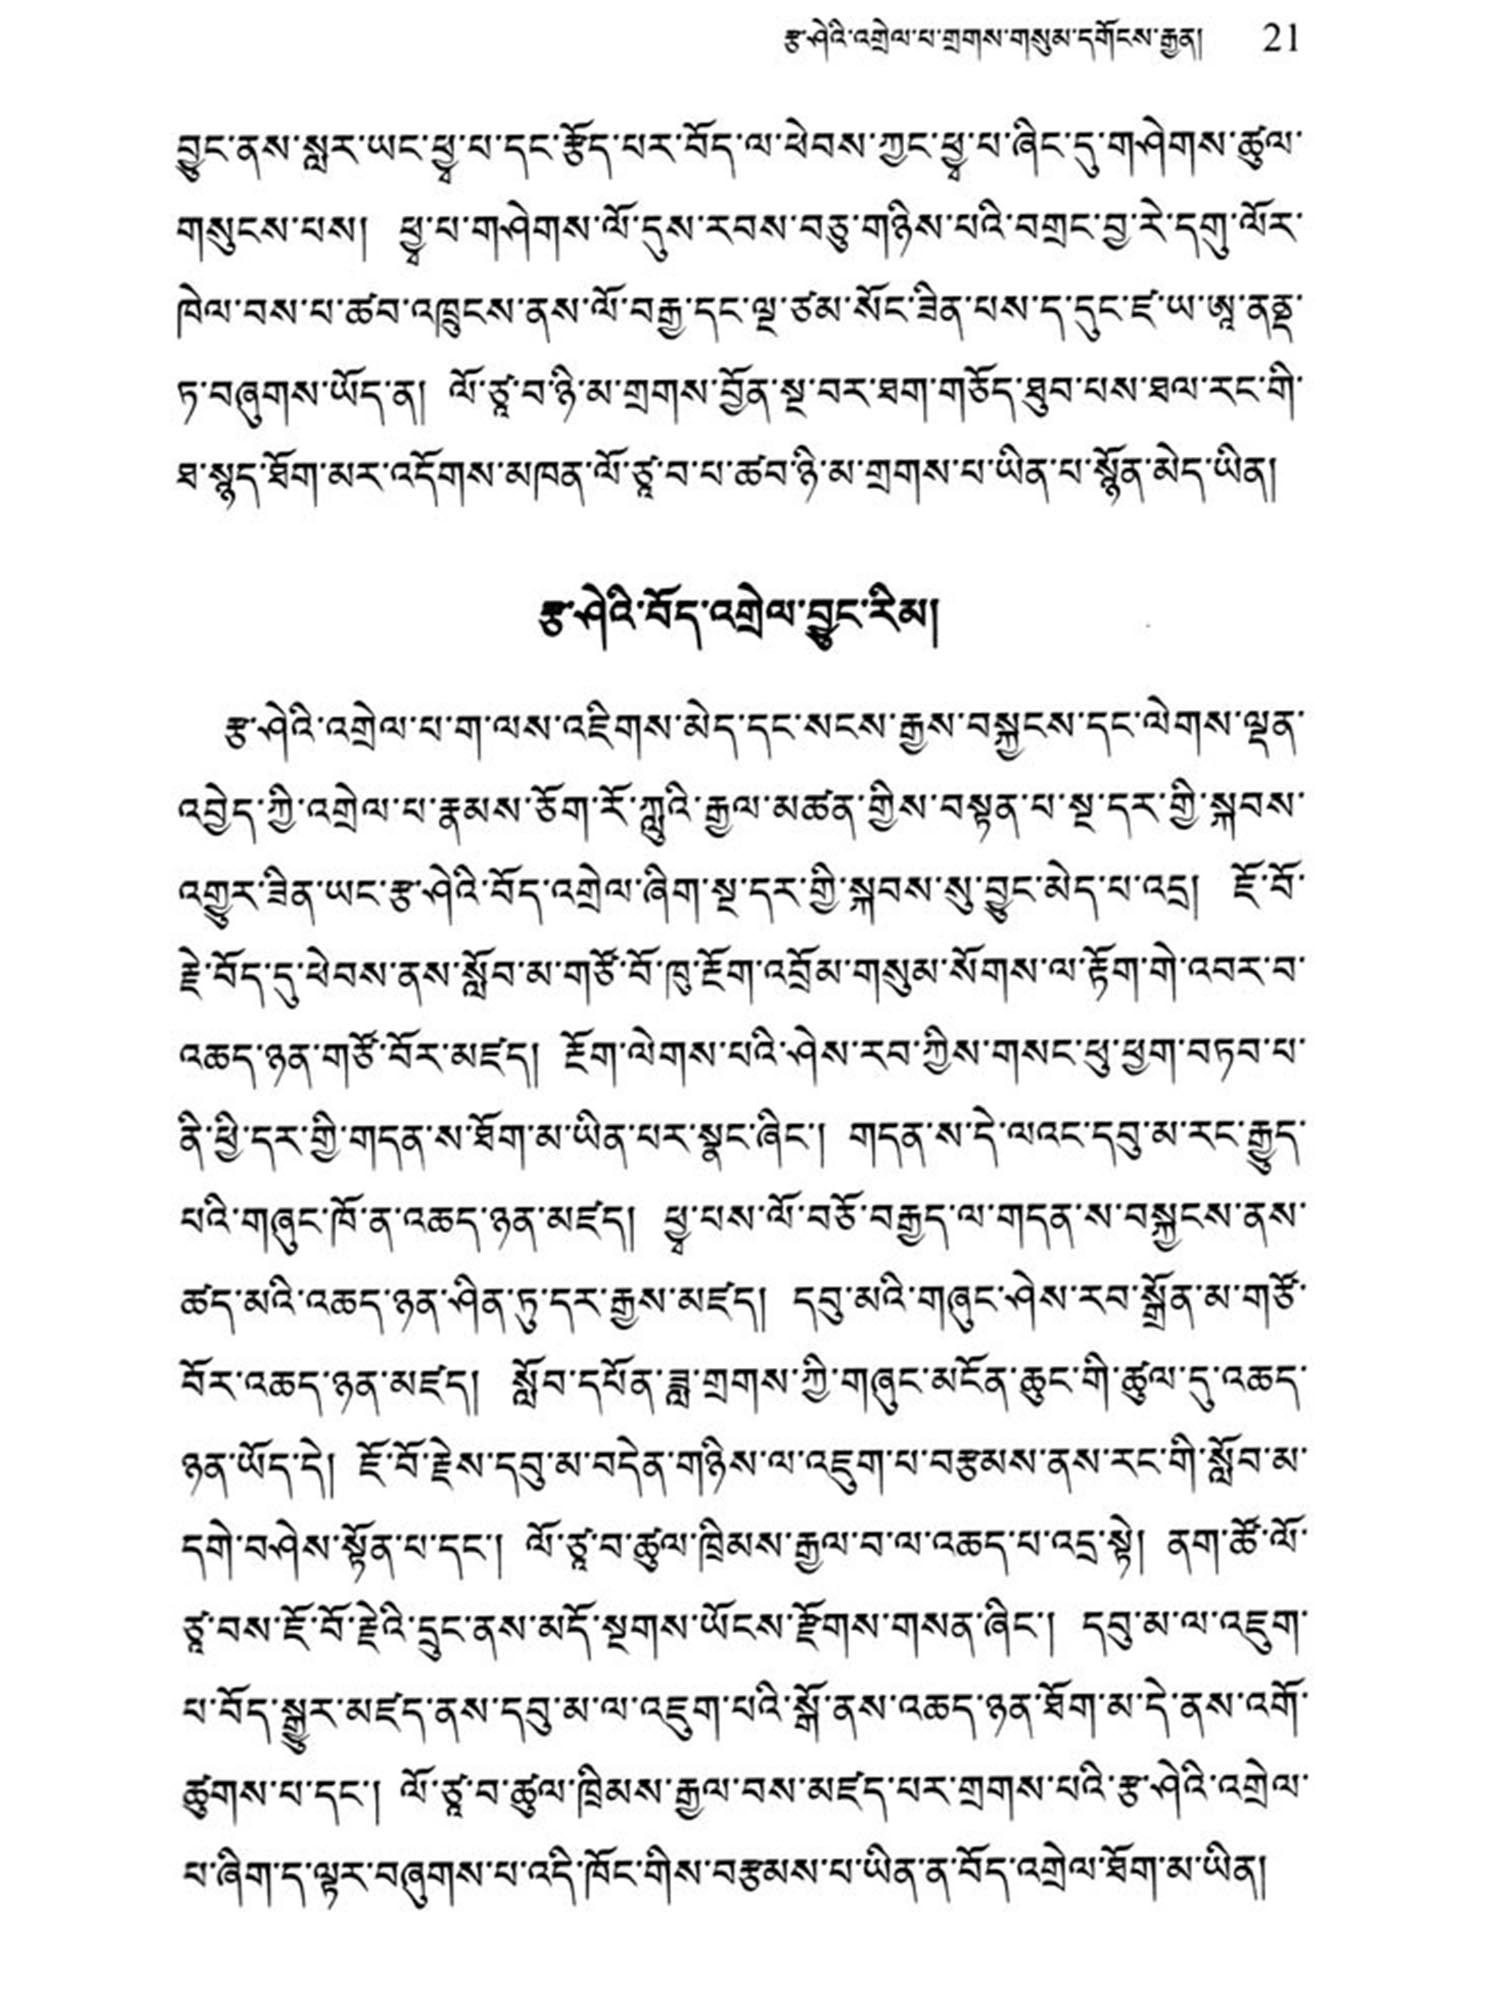 རྩ་ཤེའི་འགྲེལ་པ་གྲགས་གསུམ་དགོངས་རྒྱན། 21
བྱུང་ནས་སླར་ཡང་ཕྱྭ་པ་དང་རྩོད་པར་བོད་ལ་ཕེབས་ཀྱང་ཕྱྭ་པ་ཞིང་དུ་གཤེགས་ཚུལ་
གསུངས་པས། ཕྱྭ་པ་གཤེགས་ལོ་དུས་རབས་བཅུ་གཉིས་པའི་བགྲང་བྱ་རེ་དགུ་ལོར་
ཁེལ་བས་པ་ཚབ་འཁྲུངས་ནས་ལོ་བརྒྱ་དང་ལྔ་ཙམ་སོང་ཟིན་པས་ད་དུང་ཛ་ཡ་ཨཱ་ནནྡ་
ཏ་བཞུགས་ཡོད་ན། ལོ་ཙཱ་བ་ཉི་མ་གྲགས་བྱོན་སྔ་བར་ཐག་གཅོད་ཐུབ་པས་ཐལ་རང་གི་
ཐ་སྙད་ཐོག་མར་འདོགས་མཁན་ལོ་ཙཱ་བ་པ་ཚབ་ཉི་མ་གྲགས་པ་ཡིན་པ་སྙོན་མེད་ཡིན།
རྩ་ཤེའི་བོད་འགྲེལ་བྱུང་རིམ།
རྩ་ཤེའི་འགྲེལ་པ་ག་ལས་འཇིགས་མེད་དང་སངས་རྒྱས་བསྐྱངས་དང་ལེགས་ལྡན་
འབྱེད་ཀྱི་འགྲེལ་པ་རྣམས་ཅོག་རོ་ཀླུའི་རྒྱལ་མཚན་གྱིས་བསྟན་པ་སྔ་དར་གྱི་སྐབས་
འགྱུར་ཟིན་ཡང་རྩ་ཤེའི་བོད་འགྲེལ་ཞིག་སྔ་དར་གྱི་སྐབས་སུ་བྱུང་མེད་པ་འདྲ། ཇོ་བོ་
རྗེ་བོད་དུ་ཕེབས་ནས་སློབ་མ་གཙོ་བོ་ཁུ་རྔོག་འབྲོམ་གསུམ་སོགས་ལ་རྟོག་གེ་འབར་བ་
འཆད་ཉན་གཙོ་བོར་མཛད། རྔོག་ལེགས་པའི་ཤེས་རབ་ཀྱིས་གསང་ཕུ་ཕྱག་བཏབ་པ་
ནི་ཕྱི་དར་གྱི་གདན་ས་ཐོག་མ་ཡིན་པར་སྣང་ཞིང་། གདན་ས་དེ་ལའང་དབུ་མ་རང་རྒྱུད་
པའི་གཞུང་ཁོ་ན་འཆད་ཉན་མཛད། ཕྱྭ་པས་ལོ་བཅོ་བརྒྱད་ལ་གདན་ས་བསྐྱངས་ནས་
ཚད་མའི་འཆད་ཉན་ཤིན་ཏུ་དར་རྒྱས་མཛད། དབུ་མའི་གཞུང་ཤེས་རབ་སྒྲོན་མ་གཙོ་
བོར་འཆད་ཉན་མཛད། སློབ་དཔོན་ཟླ་གྲགས་ཀྱི་གཞུང་མངོན་ཆུང་གི་ཚུལ་དུ་འཆད་
ཉན་ཡོད་དེ། ཇོ་བོ་རྗེས་དབུ་མ་བདེན་གཉིས་ལ་འཇུག་པ་བརྩམས་ནས་རང་གི་སློབ་མ་
དགེ་བཤེས་སྟོན་པ་དང་། ལོ་ཙཱ་བ་ཚུལ་ཁྲིམས་རྒྱལ་བ་ལ་འཆད་པ་འདྲ་སྟེ། ནག་ཚོ་ལོ་
ཙཱ་བས་ཇོ་བོ་རྗེའི་དྲུང་ནས་མདོ་སྔགས་ཡོངས་རྫོགས་གསན་ཞིང་། དབུ་མ་ལ་འཇུག་
པ་བོད་སྒྱུར་མཛད་ནས་དབུ་མ་ལ་འཇུག་པའི་སྒོ་ནས་འཆད་ཉན་ཐོག་མ་དེ་ནས་འགོ་
ཚུགས་པ་དང་། ལོ་ཙཱ་བ་ཚུལ་ཁྲིམས་རྒྱལ་བས་མཛད་པར་གྲགས་པའི་རྩ་ཤེའི་འགྲེལ་
པ་ཞིག་ད་ལྟར་བཞུགས་པ་འདི་ཁོང་གིས་བརྩམས་པ་ཡིན་ན་བོད་འགྲེལ་ཐོག་མ་ཡིན།